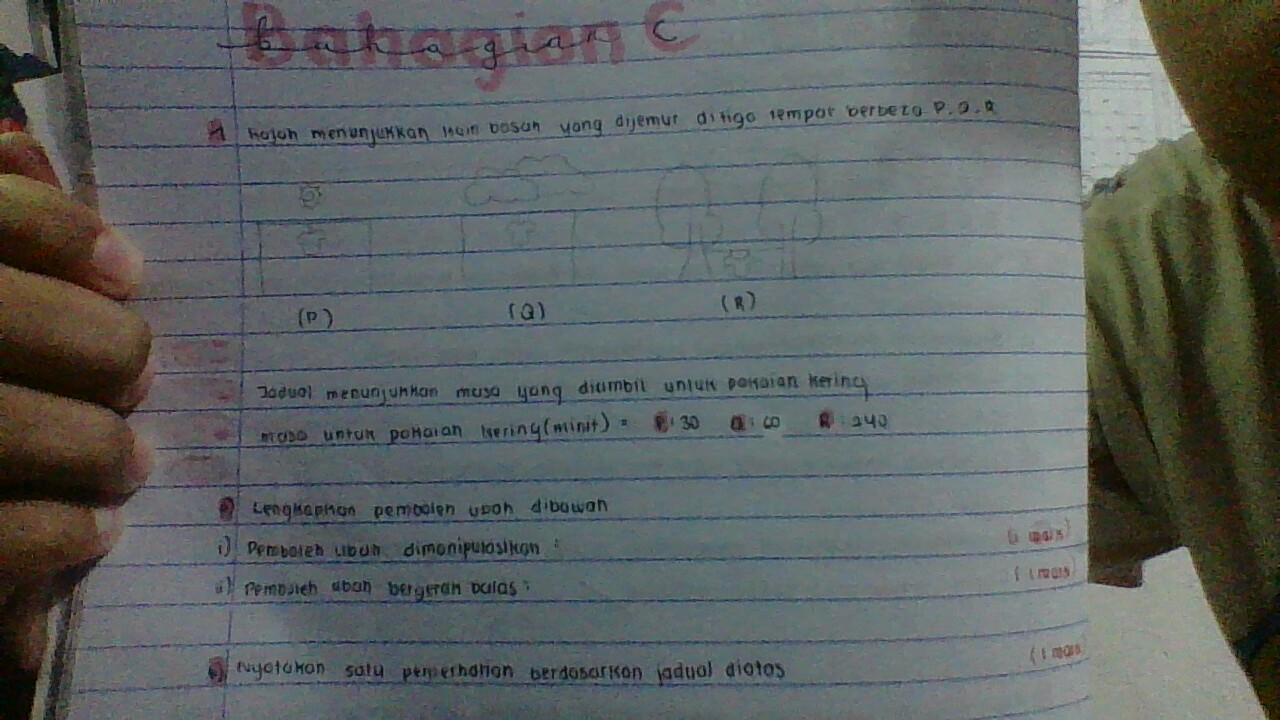 Bahagian C
A Rajah menunjukkan kain basah yang dijemur ditiga tempat berbeza P.Q.R
(P) (Q) (R)
Jadual menunjukkan masa yang diambil untuk pakaian kering
masa untuk pakaian kering(minit) = P:30 Q:60 R:240
a) Lengkapkan pemboleh ubah dibawah
i) Pemboleh ubah dimanipulasikan : (1 mark)
ii) Pemboleh ubah bergerak balas : (1 mark)
b) Nyatakan satu pemerhatian berdasarkan jadual diatas (1 mark